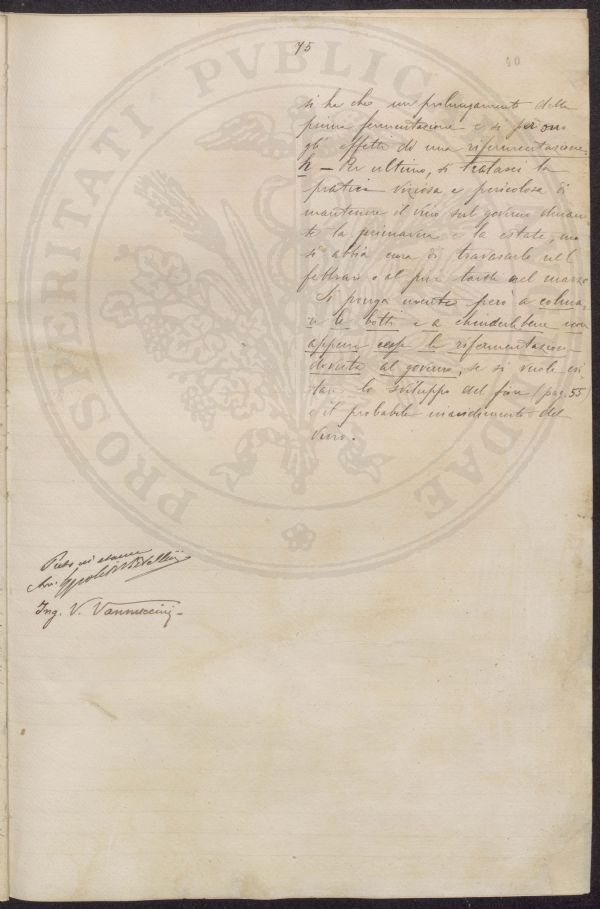 75
si ha che un prolungamento della
prima fermentazione e si perdono
gli effetti di una rifermentazione.
h – Per ultimo, si tralasci la
pratica viziosa e pericolosa di
mantenere il vino sul governo duran-
te la primavera e la estate, ma
si abbia cura di travasarlo nel
febbraio o al più tardi nel marzo
Si ponga mente però a colma-
re le botti e a chiuderle bene non
appena cessi la rifermentazione
dovuta al governo, se si vuole evi-
tare lo sviluppo del fiore (pag. 55)
e il probabile inacidimento del
vino.
Preso in esame
Ing. V. Vannuccini
PROSPERITATI PVBLICAE